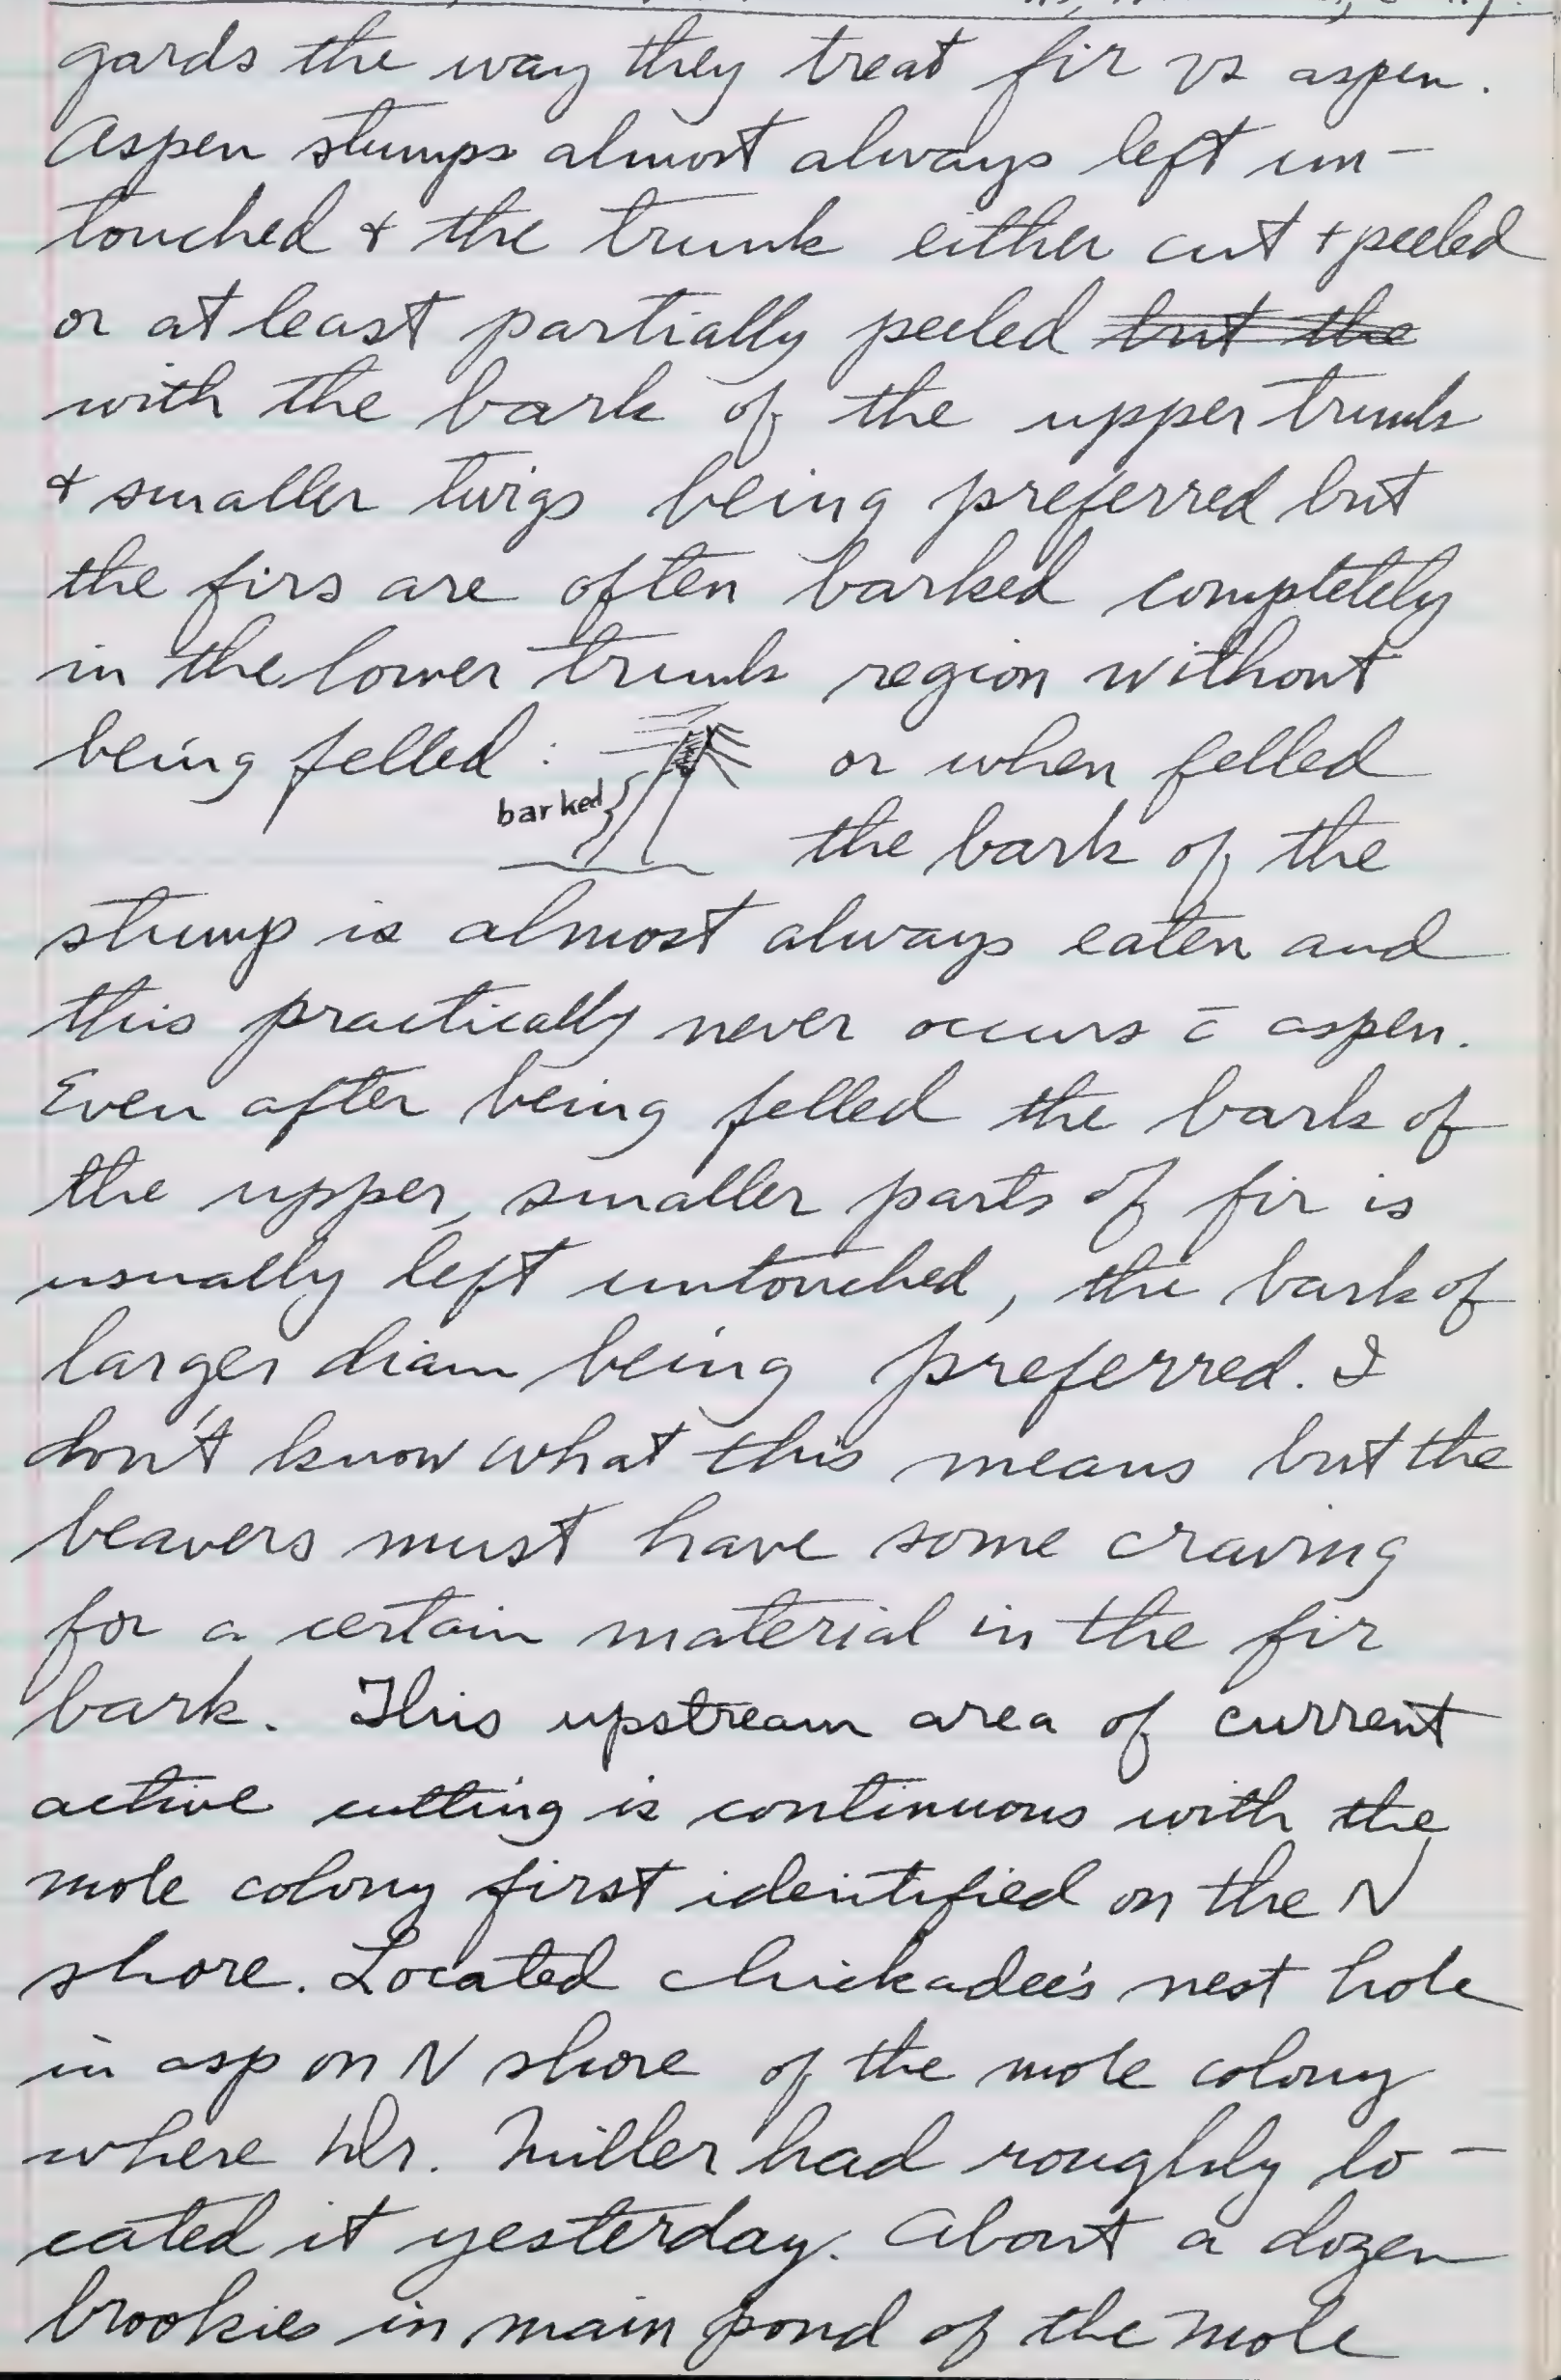 gards the way they treat fir vs aspen.
Aspen stumps almost always left un-
touched & the trunk either cut + peeled
or at least partially peeled but the
with the bark of the upper trunk
& smaller twigs being preferred but
the firs are often barked completely
in the lower trunk region without
being felled : or when felled
barked
the bark of the
stump is almost always eaten and
this practically never occurs c̄ aspen.
Even after being felled the bark of
the upper, smaller parts of fir is
usually left untouched, the bark of
larger diam being preferred. I
don't know what this means but the
beavers must have some craving
for a certain material in the fir
bark. This upstream area of current
active cutting is continuous with the
mole colony first identified on the N
shore. Located chickadee's nest hole
in asp on N shore of the mole colony
where Dr. Miller had roughly lo-
cated it yesterday. About a dozen
brookies in main pond of the mole